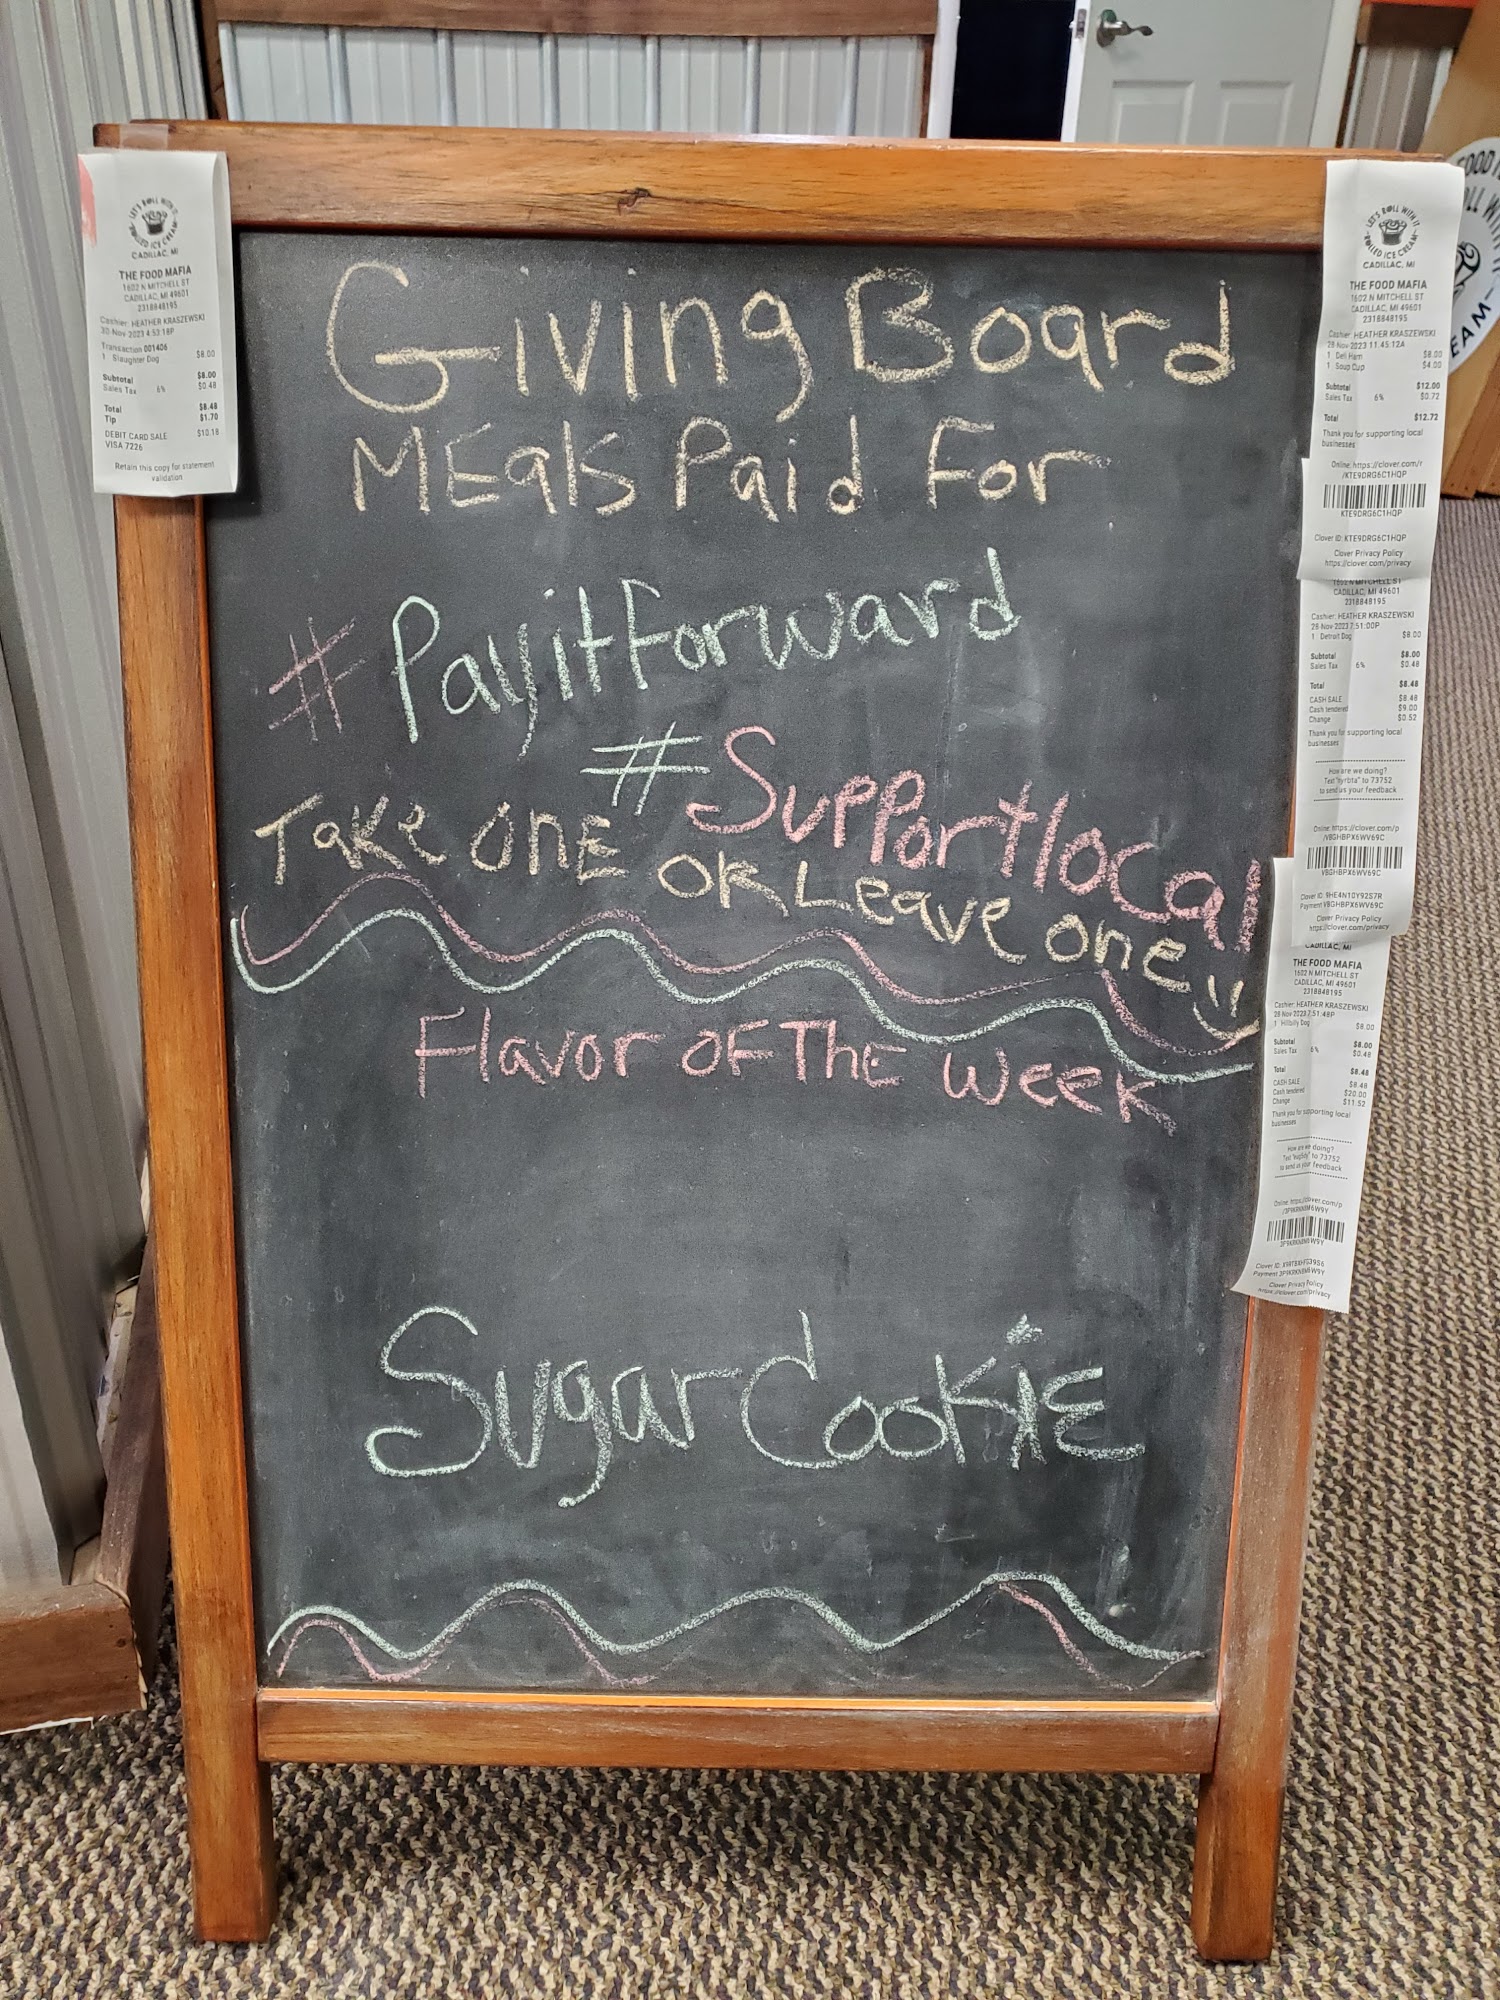 Giving Board
MEals Paid For
#Payitforward
#Supportlocal
Take onE or Leave one
Flavor oF The Week
Sugar Cookie
LET'S ROLL WITH IT
ROLLED ICE CREAM
CADILLAC, MI
THE FOOD MAFIA
1602 N MITCHELL ST
CADILLAC, MI 49601
2318848195
Cashier: HEATHER KRASZEWSKI
30-Nov-2023 4:53:18P
Transaction 001406
1 Slaughter Dog $8.00
Subtotal $8.00
Sales Tax 6% $0.48
Total $8.48
Tip $1.70
DEBIT CARD SALE $10.18
VISA 7226
Retain this copy for statement
validation
LET'S ROLL WITH IT
ROLLED ICE CREAM
CADILLAC, MI
THE FOOD MAFIA
1602 N MITCHELL ST
CADILLAC, MI 49601
2318848195
Cashier: HEATHER KRASZEWSKI
28-Nov-2023 11:45:12A
1 Deli Ham $8.00
1 Soup Cup $4.00
Subtotal $12.00
Sales Tax 6% $0.72
Total $12.72
Thank you for supporting local
businesses
Online: https://clover.com/r
/KTE9DRG6C1HQP
KTE9DRG6C1HQP
Clover ID: KTE9DRG6C1HQP
Clover Privacy Policy
https://clover.com/privacy
1602 N MITCHELL ST
CADILLAC, MI 49601
2318848195
Cashier: HEATHER KRASZEWSKI
28-Nov-2023 7:51:00P
1 Detroit Dog $8.00
Subtotal $8.00
Sales Tax 6% $0.48
Total $8.48
CASH SALE $8.48
Cash tendered $9.00
Change $0.52
Thank you for supporting local
businesses
How are we doing?
to 73752
to send us your feedback
Online: https://clover.com/p
/VBGHBPX6WV69C
VBGHBPX6WV69C
Clover ID: 9HE4N10Y92S7R
Payment VBGHBPX6WV69C
Clover Privacy Policy
https://clover.com/privacy
CADILLAC, MI
THE FOOD MAFIA
1602 N MITCHELL ST
CADILLAC, MI 49601
2318848195
Cashier: HEATHER KRASZEWSKI
28-Nov-2023 7:51:48P
1 Hillbilly Dog $8.00
Subtotal $8.00
Sales Tax 6% $0.48
Total $8.48
CASH SALE $8.48
Cash tendered $20.00
Change $11.52
Thank you for supporting local
businesses
How are we doing?
to 73752
to send us your feedback
Online: https://clover.com/p
Clover Privacy Policy
https://clover.com/privacy
FOOD
LL WITH
EAM